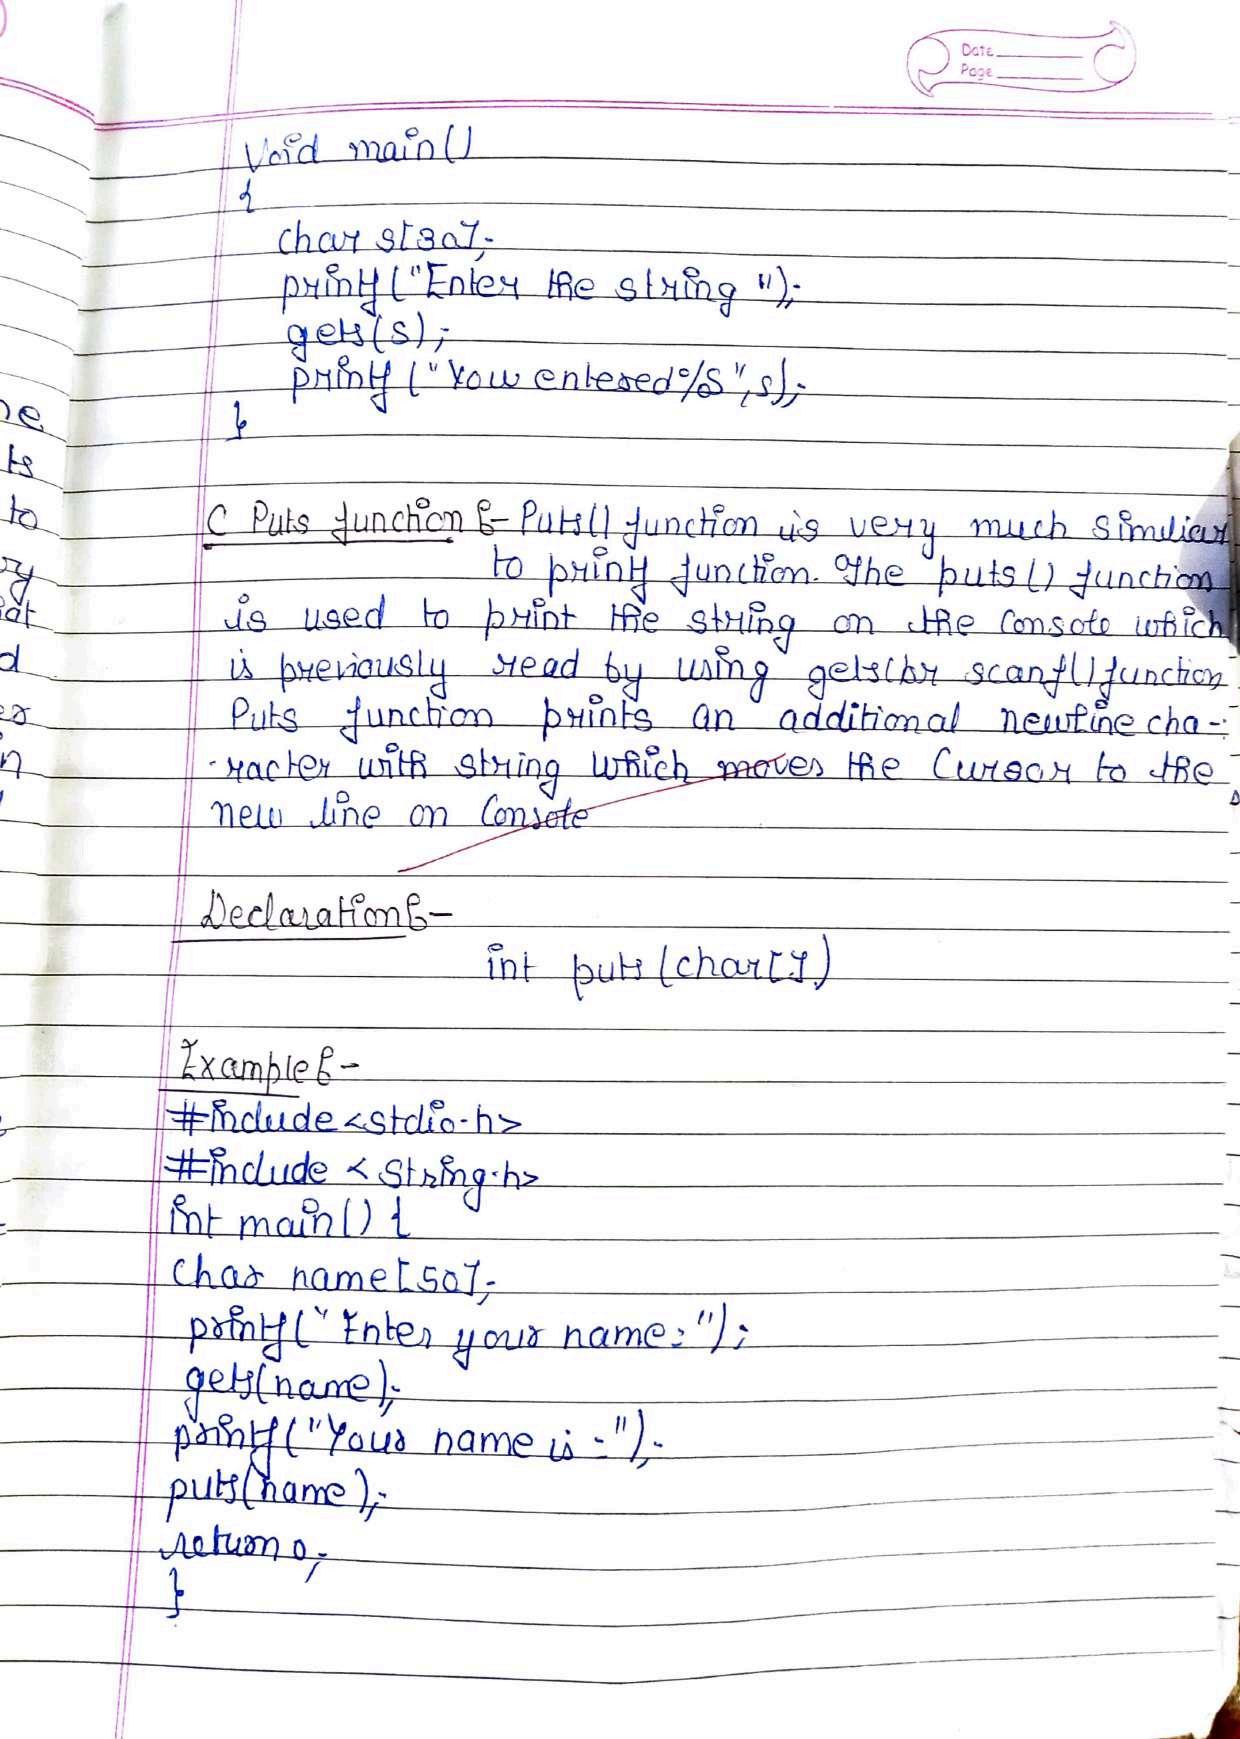 Date
Page
void main()
{
char s[30];
printf("Enter the string ");
gets(s);
printf("You entered %s",s);
}
C Puts function :- Puts() function is very much similiar
to printf function. The puts() function
is used to print the string on the Console which
is previously read by using gets() or scanf() function
Puts function prints an additional newline cha-
racter with string which moves the Cursor to the
new line on Console
Declaration :-
int puts(char[])
Example :-
#include <stdio.h>
#include <string.h>
int main() {
char name[50];
printf("Enter your name:");
gets(name);
printf("Your name is :");
puts(name);
return 0;
}
ne
ts
to
ry
at
d
er
n